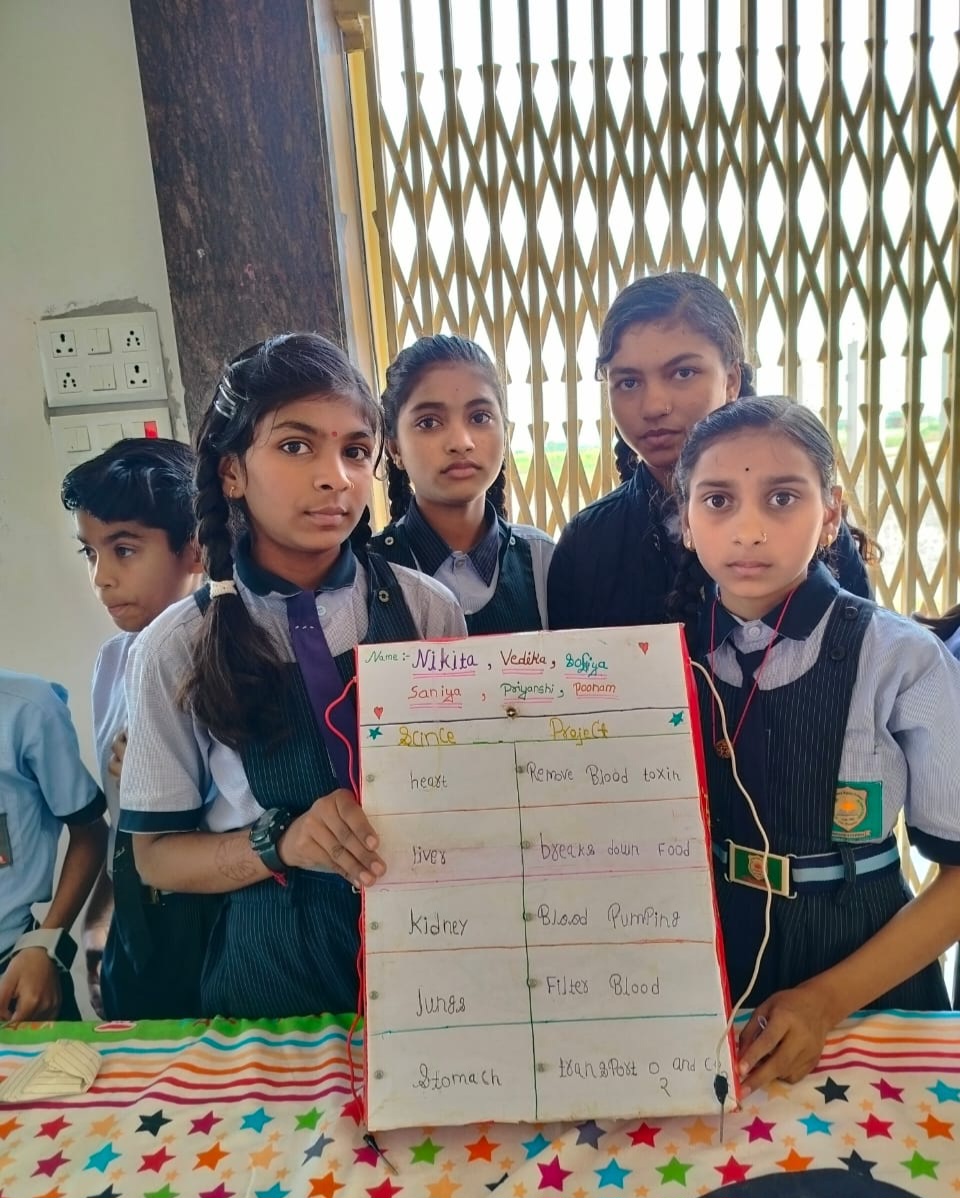 Name :- Nikita , Vedika , Sofiya
Saniya , Priyanshi , Poonam
Scince Project
heart Remove Blood toxin
liver breaks down Food
Kidney Blood Pumping
lungs Filter Blood
Stomach transport O2 and